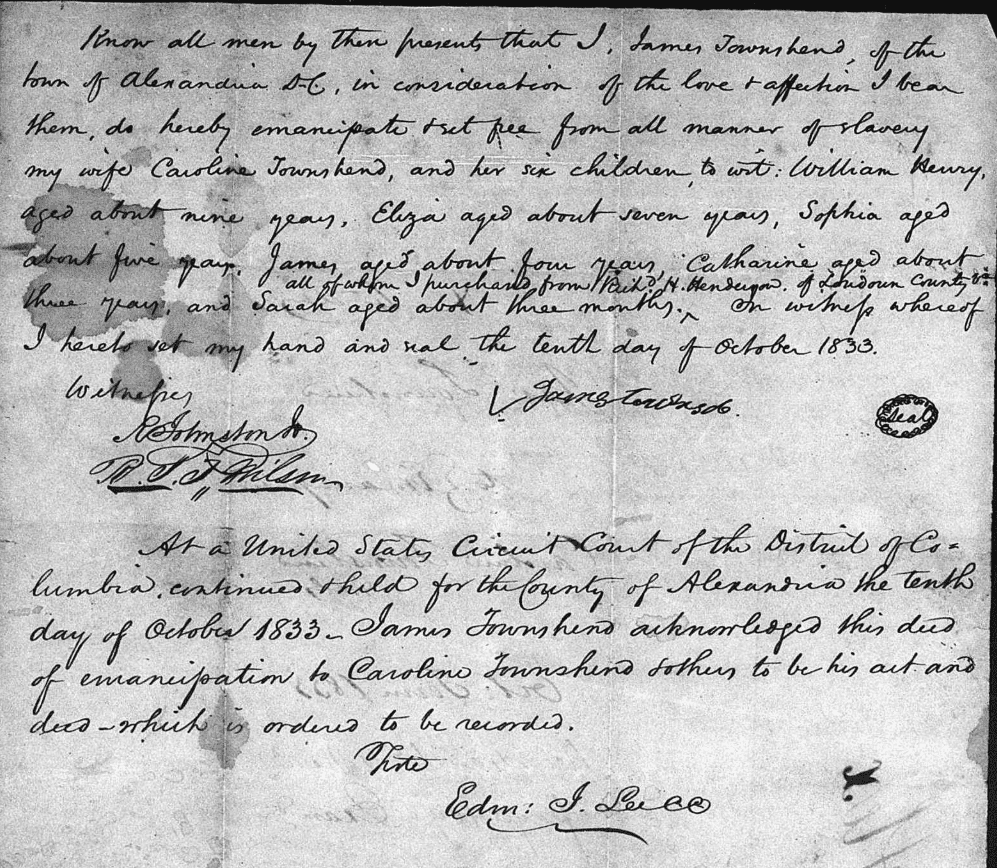 Know all men by these presents that I, James Townshend, of the
town of Alexandria D.C, in consideration of the love & affection I bear
them, do hereby emancipate & set free from all manner of slavery
my wife Caroline Townshend, and her six children, to wit: William Henry,
aged about nine years, Eliza aged about seven years, Sophia aged
about five years, James aged about four years, Catharine aged about
all of whom I purchased from Rich'd H. Henderson. of Loudoun County Va
three years, and Sarah aged about three months. ^ In witness whereof
I hereto set my hand and seal the tenth day of October 1833.
Witnesses
James townsob.
Seal
R Johnston Jr.
T. F. Wilson
At a United States Circuit Court of the District of Co=
lumbia, continued & held for the County of Alexandria the tenth
day of October 1833 - James Townshend acknowledged this deed
of emancipation to Caroline Townshend & others to be his act and
deed - which is ordered to be recorded.
Teste
Edm: I. Lee CC